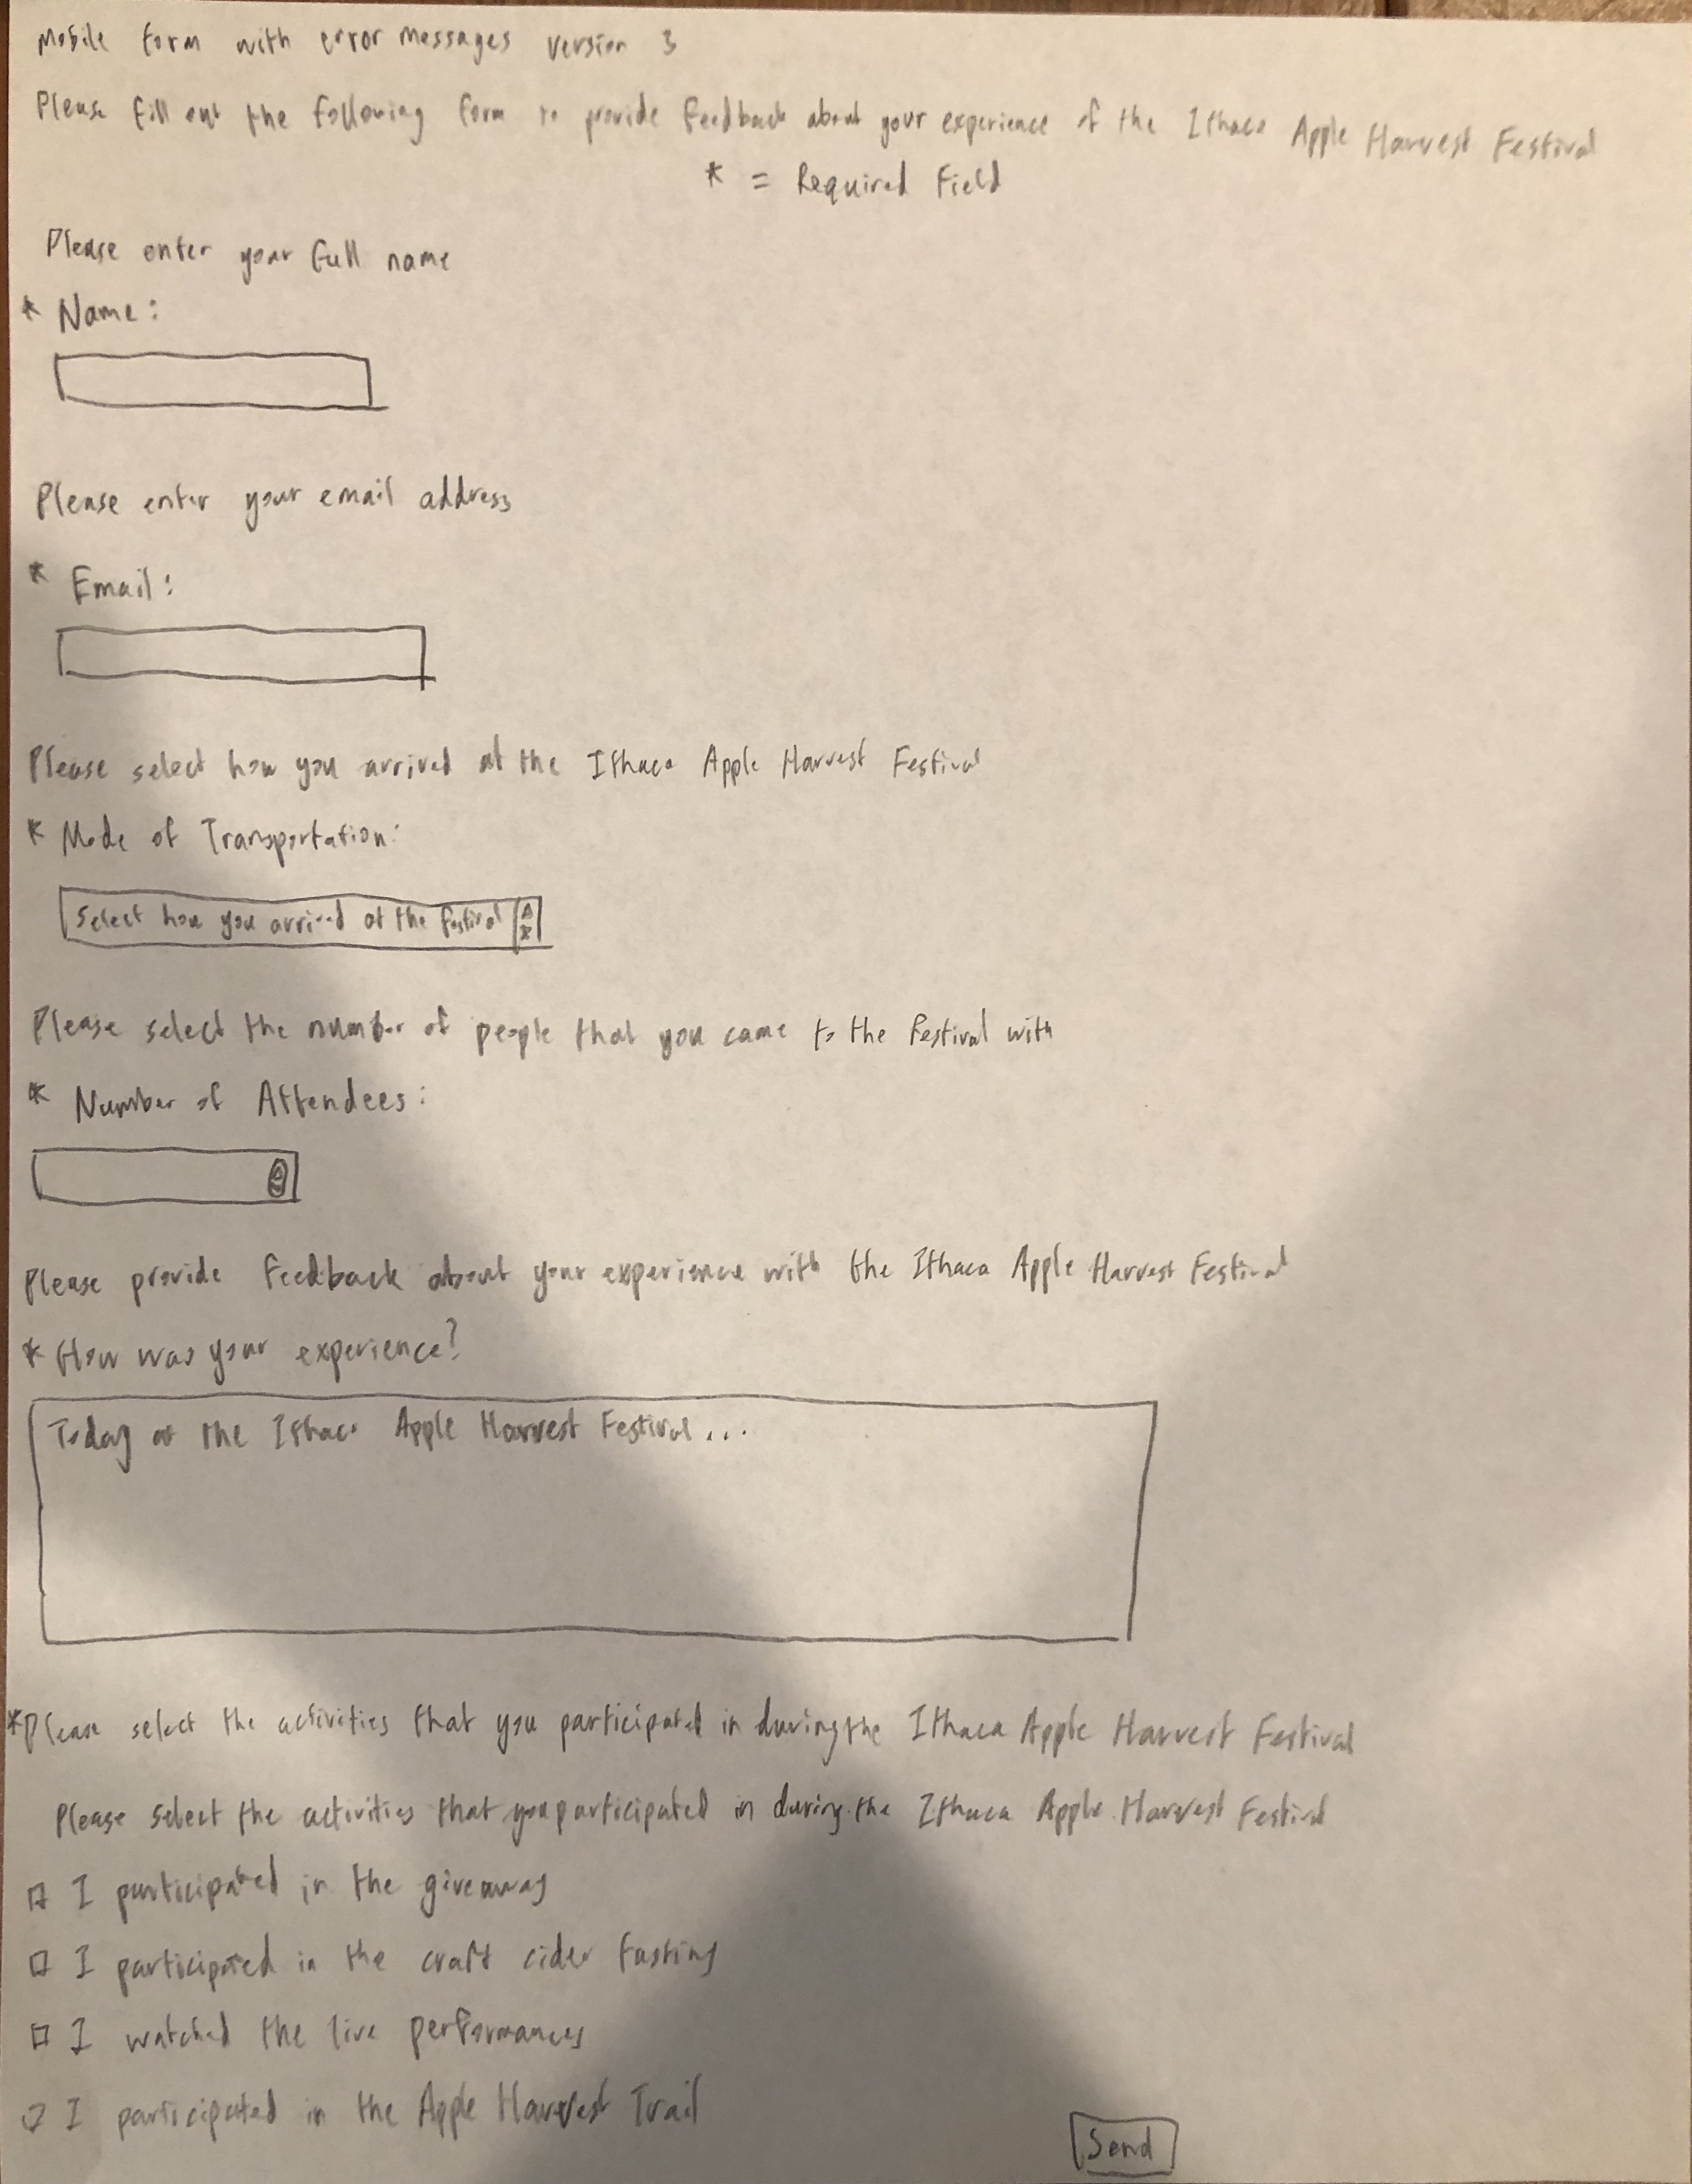 Mobile form with error messages version 3
Please fill out the following form to provide feedback about your experience of the Ithaca Apple Harvest Festival
* = Required Field
Please enter your full name
* Name:
Please enter your email address
* Email:
Please select how you arrived at the Ithaca Apple Harvest Festival
* Mode of Transportation:
Select how you arrived at the festival
Please select the number of people that you came to the festival with
* Number of Attendees:
Please provide feedback about your experience with the Ithaca Apple Harvest Festival
* How was your experience?
Today at the Ithaca Apple Harvest Festival...
*Please select the activities that you participated in during the Ithaca Apple Harvest Festival
Please select the activities that you participated in during the Ithaca Apple Harvest Festival
I participated in the giveaway
I participated in the craft cider tasting
I watched the live performances
I participated in the Apple Harvest Trail
Send